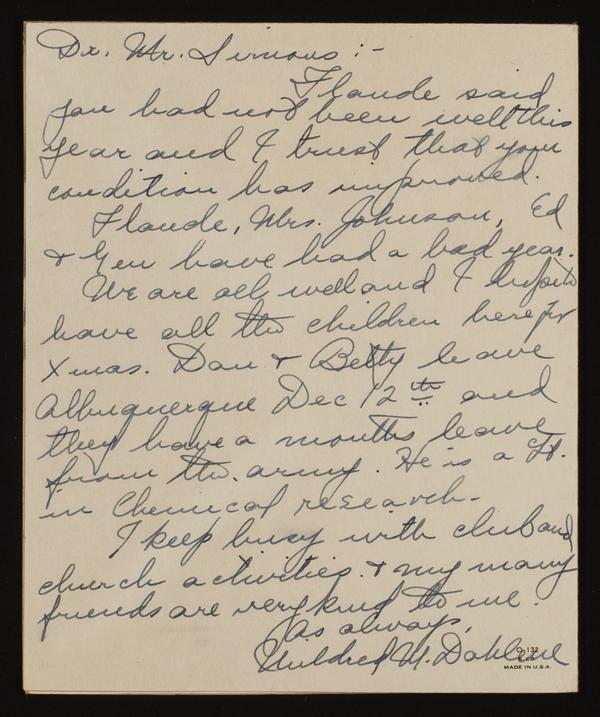 Dr. Mr. Simons :-
Flaude said
you had not been well this
year and I trust that your
condition has improved.
Flaude, Mrs. Johnson, Ed
& Gen have had a bad year.
We are all well and I hope to
have all the children here for
Xmas. Dan & Betty leave
Albuquerque Dec 12th and
they have a months leave
from the army. He is a Lt.
in Chemical research-
I keep busy with club and
church activities & my many
friends are very kind to me.
As always,
Mildred M. Dahlene
MADE IN U.S.A.